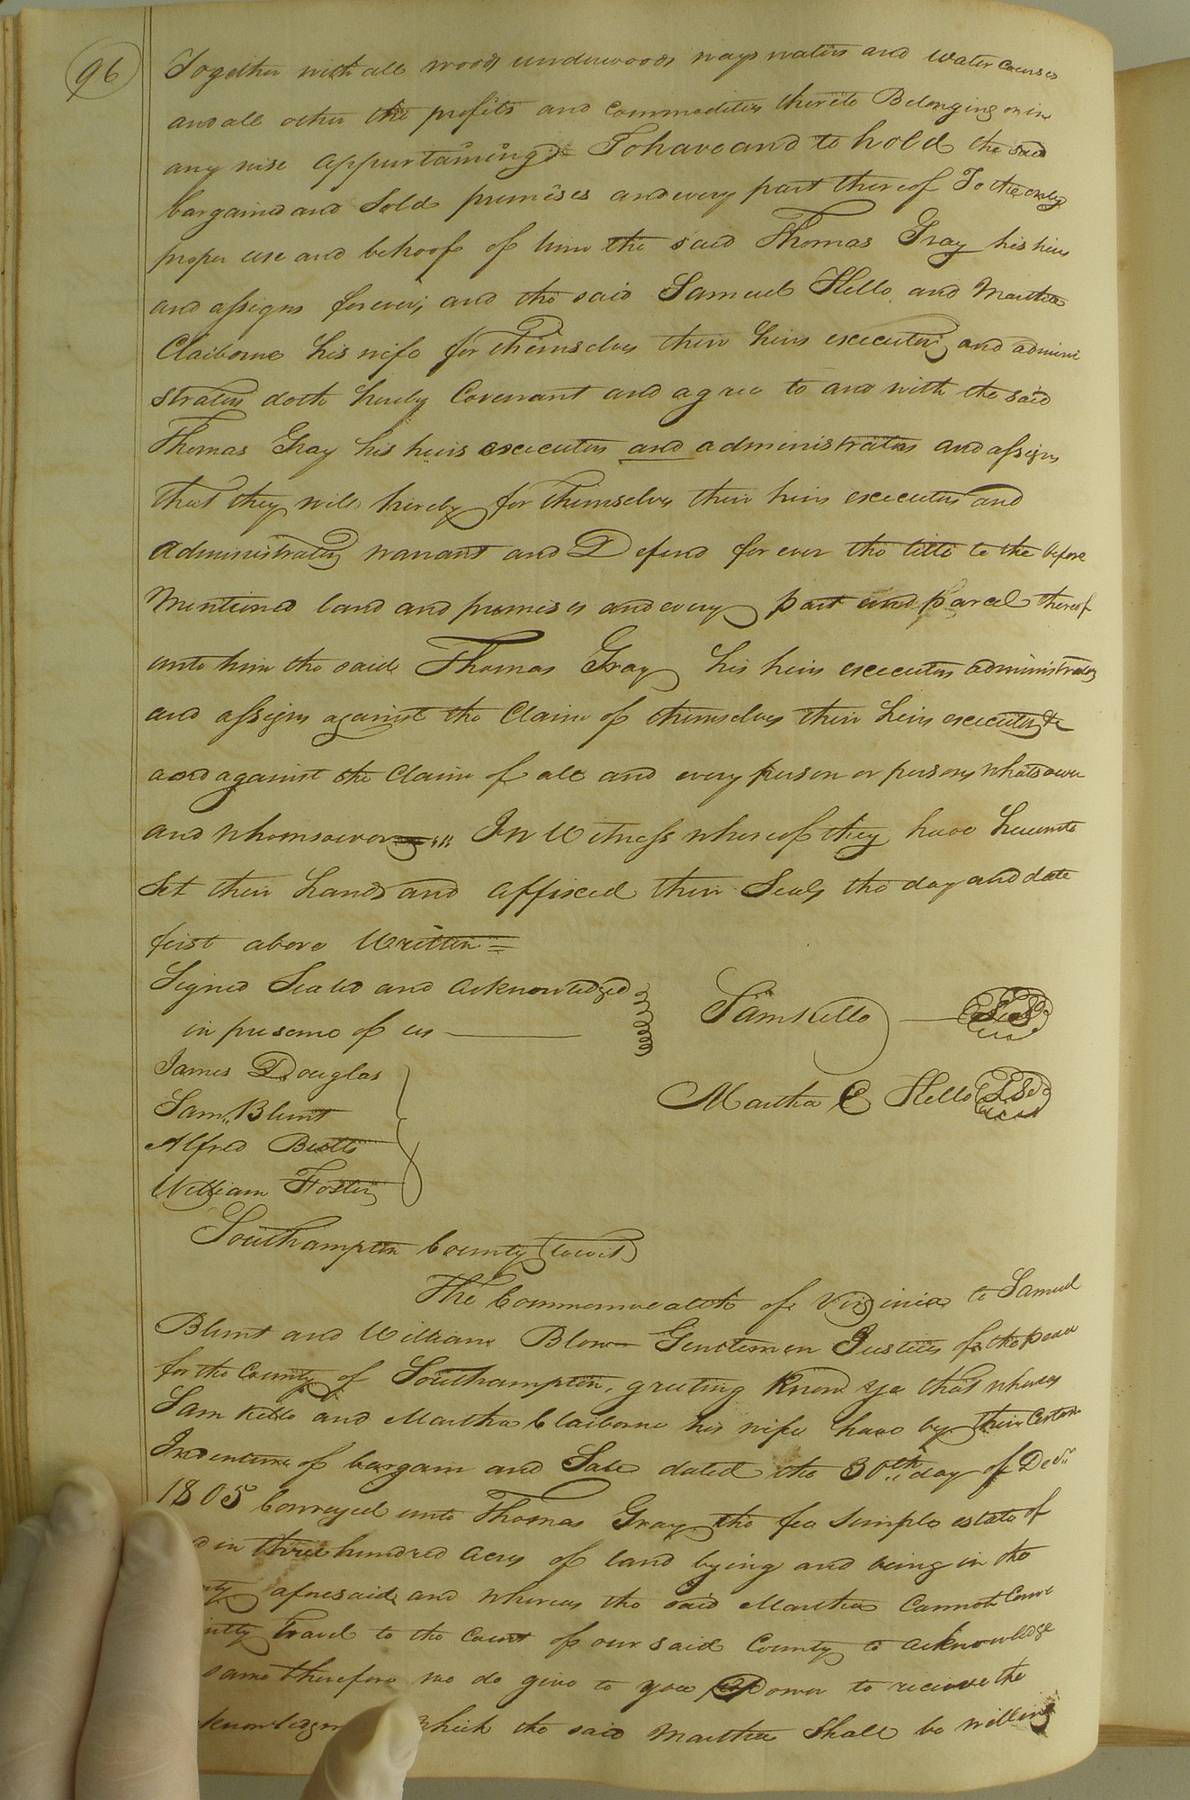 96
Together with all woods underwoods ways waters and water courses
and all other the profits and commodities thereto Belonging or in
any wise appurtaining To have and to hold the said
bargained and Sold premises and every part thereof To the only
proper use and behoof of him the said Thomas Gray his heirs
and assigns forever, and the said Samuel Kello and Martha
Claiborne his wife for themselves their heirs executors and admini
strators doth hereby Covenant and agree to and with the said
Thomas Gray his heirs executors and administrators and assigns
that they will hereby for themselves their heirs executors and
Administrators warrant and Defend for ever the title to the before
Mentioned land and premises and every part and parcel thereof
unto him the said Thomas Gray his heirs executors administrators
and assigns against the Claim of themselves their heirs executors &c
and against the Claim of all and every person or persons whatsoever
and whomsoever In Witness whereof they have hereunto
Set their hands and affixed their Seals the day and date
first above Written =
Signed Sealed and acknowledged
in presence of us
Sam Kello L.S.
James Douglas
Martha C Kello L.S.
Sam. Blunt
Alfred Butts
William Foster
Southampton County (towit)
The Commonwealth of Virginia to Samuel
Blunt and William Blow Gentlemen Justices of the peace
for the County of Southampton, greeting Know Ye that whereas
Sam Kello and Martha Claiborne his wife have by their Certain
Indenture of bargain and Sale dated the 30th day of Decr
1805 Conveyed unto Thomas Gray the fee Simple estate of
in three hundred acres of land lying and being in the
aforesaid and whereas the said Martha Cannot Conve
travel to the Court of our said County to acknowledge
same therefore we do give to you Power to receive the
which the said Martha Shall be willing